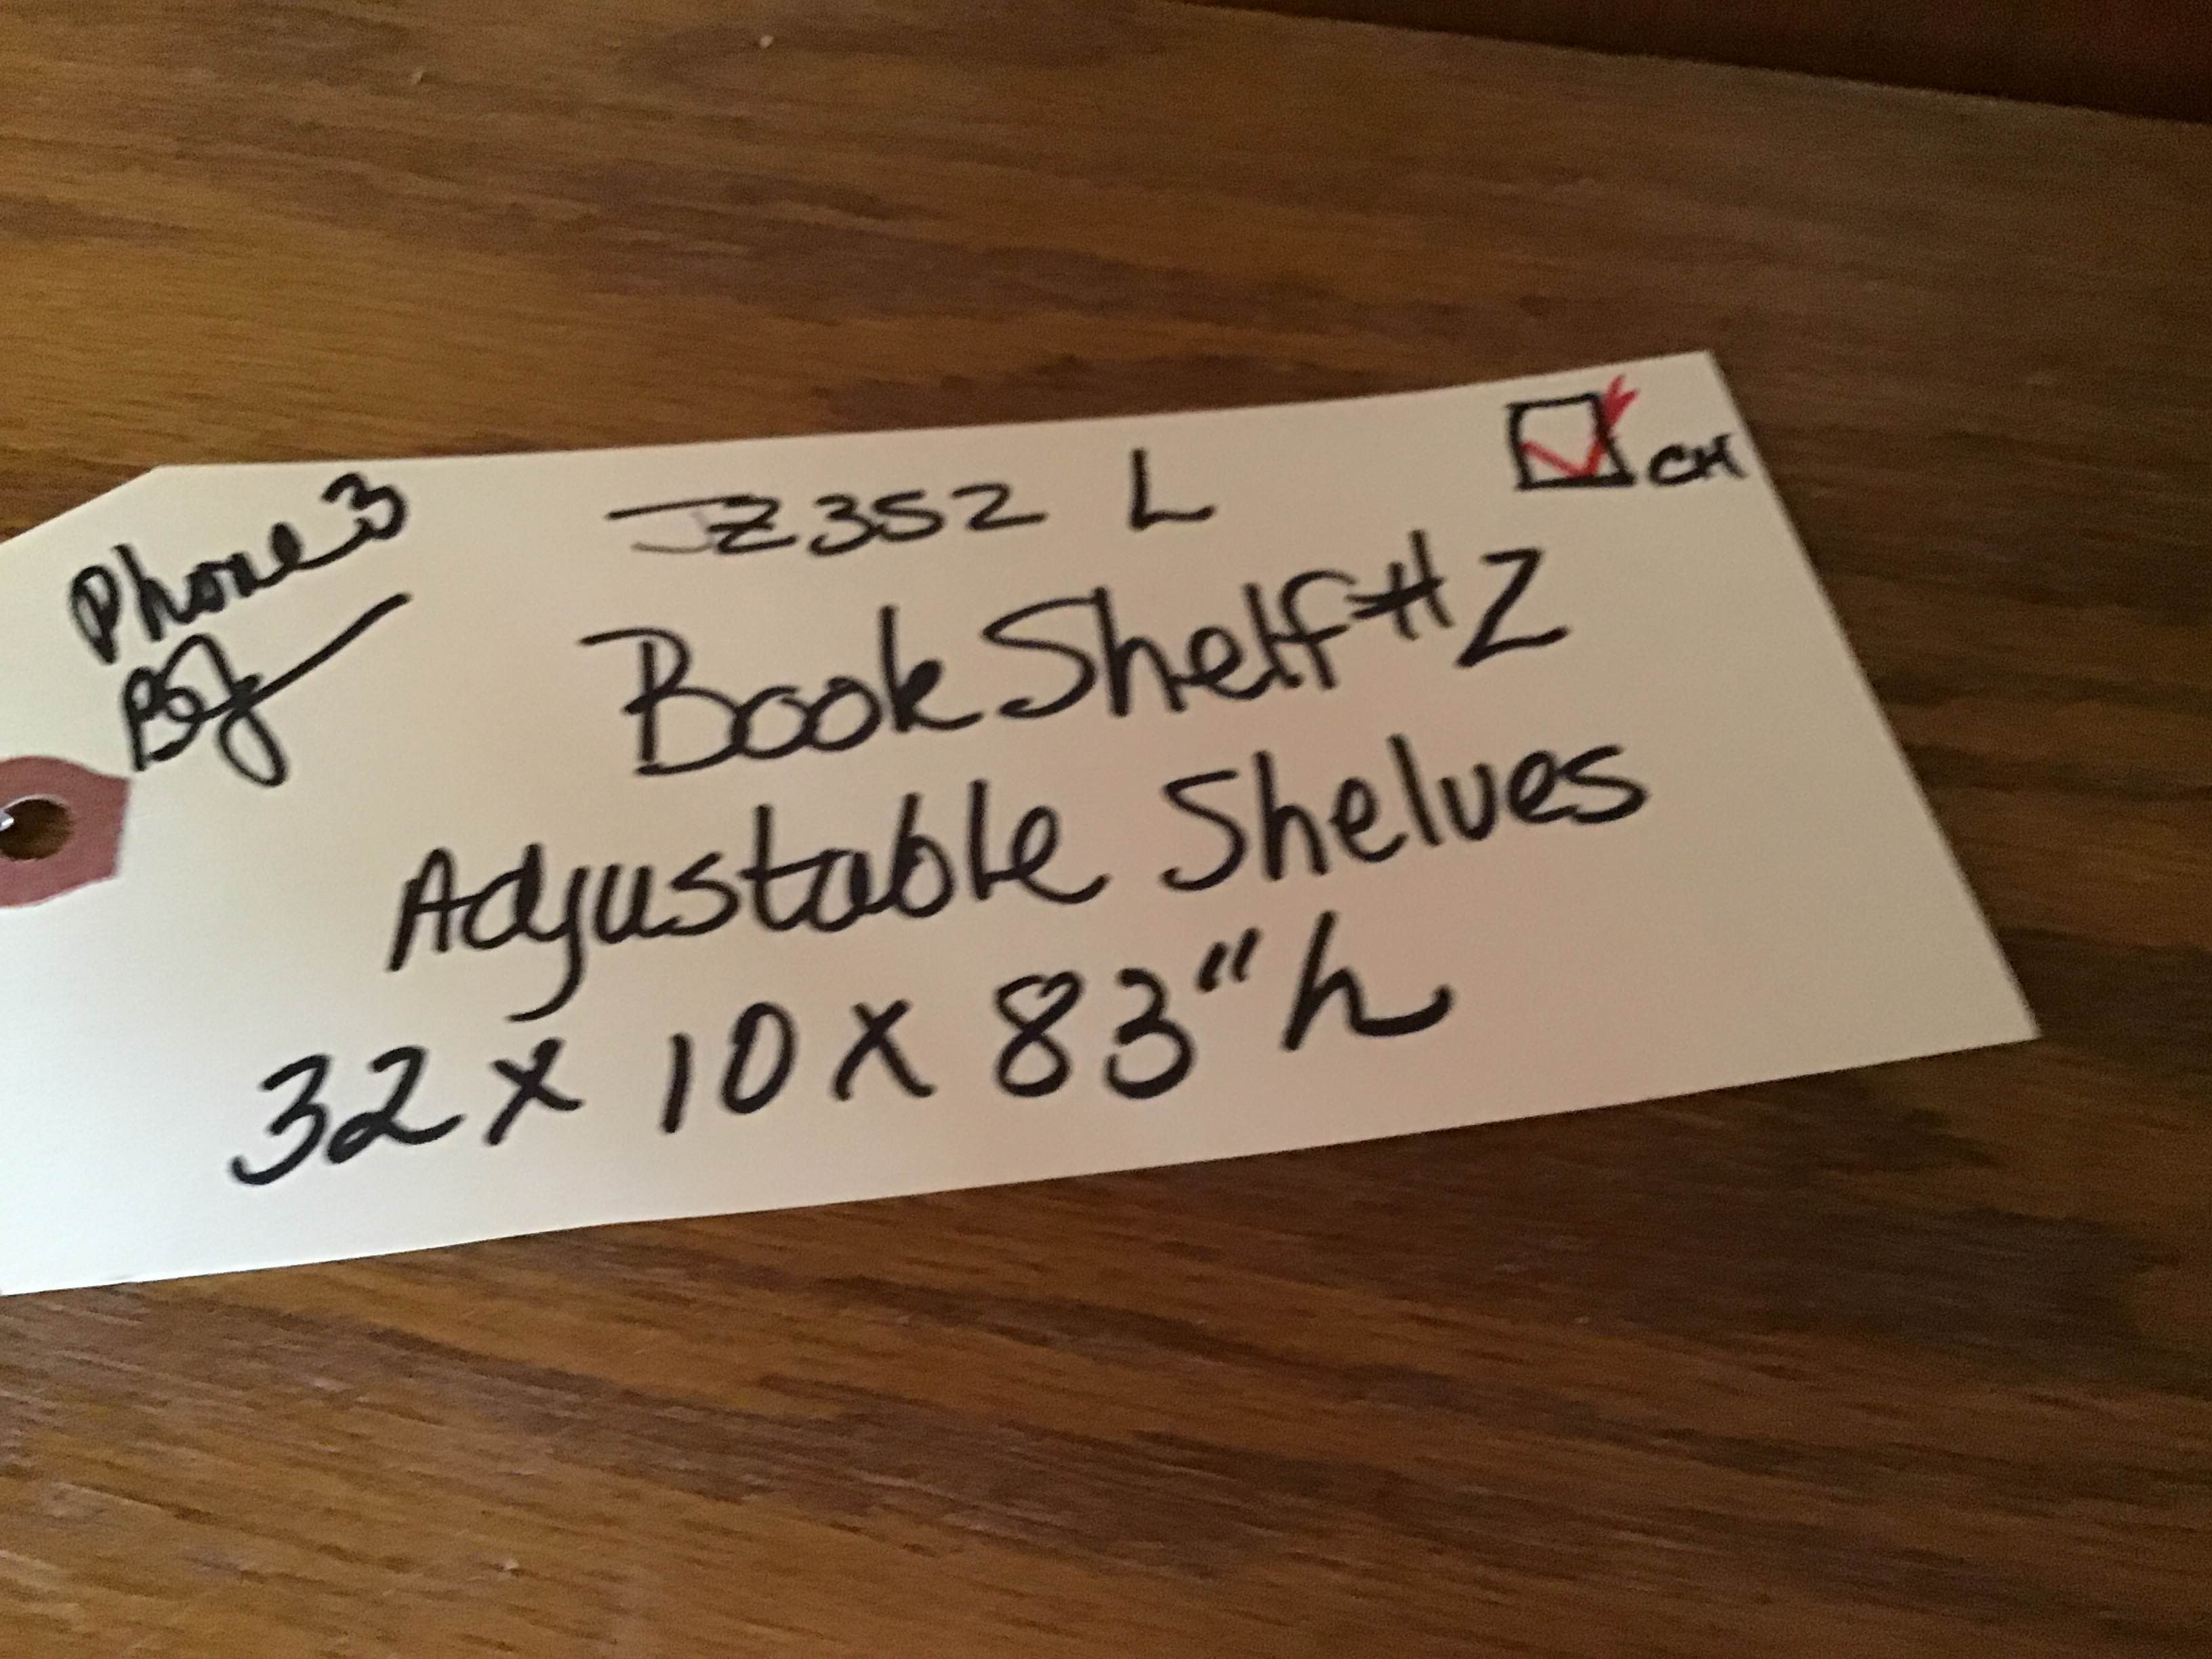 Phone 3
JZ352 L
CH
Book Shelf #2
Adjustable Shelves
32 x 10 x 83" h